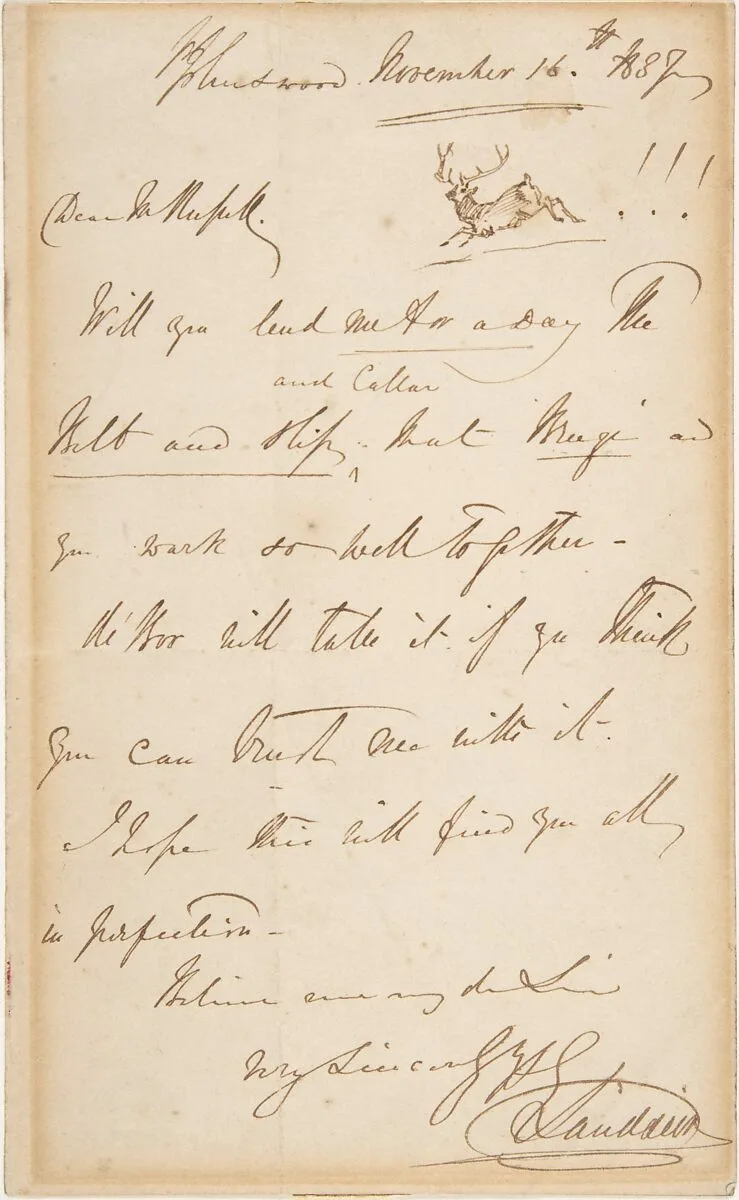 St Johns wood November 16.th 1837
!!!
Dear Mr Russell.
Will you lend me for a day The
and Collar
Belt and slip. that and
you work so well together -
will take it if you think
you can trust me with it.
I hope this will find you all
in perfection -
Believe me my dr Sir
very Sincerely Yrs
E Landseer